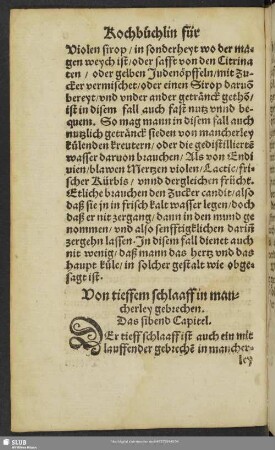 Kochbüchlin für
Violen sirop / in sonderheyt wo der ma-
gen weych ist / oder safft von den Citrina
ten / oder gelben Judenöpffeln / mit Zu-
cker vermischet / oder einen Sirop darũ
bereyt / vnd vnder ander getränck gethõ /
ist in disem fall auch fast nutz vnnd be-
quem. So mag mann in disem fall auch
nutzlich getränck sieden von mancherley
külenden kreutern / oder die gedistillierte
wasser daruon brauchen / Als von Endi
uien / blawen Mertzen violen / Lactic / fri-
scher Kürbis / vnnd dergleichen früchte.
Etliche brauchen den Zucker candit / also
daß sie jn in frisch kalt wasser legen / doch
daß er nit zergang / dann in den mund ge
nommen / vnd also senfftigklichen darin
zergehn lassen. In disem fall dienet auch
nit wenig / daß mann das hertz vnd das
haupt küle / in solcher gestalt wie obge-
sagt ist.
Von tieffem schlaaff in man-
cherley gebrechen.
Das sibend Capitel.
DEr tieff schlaaff ist auch ein mit
lauffender gebrechẽ in mancher-
ley
SLUB